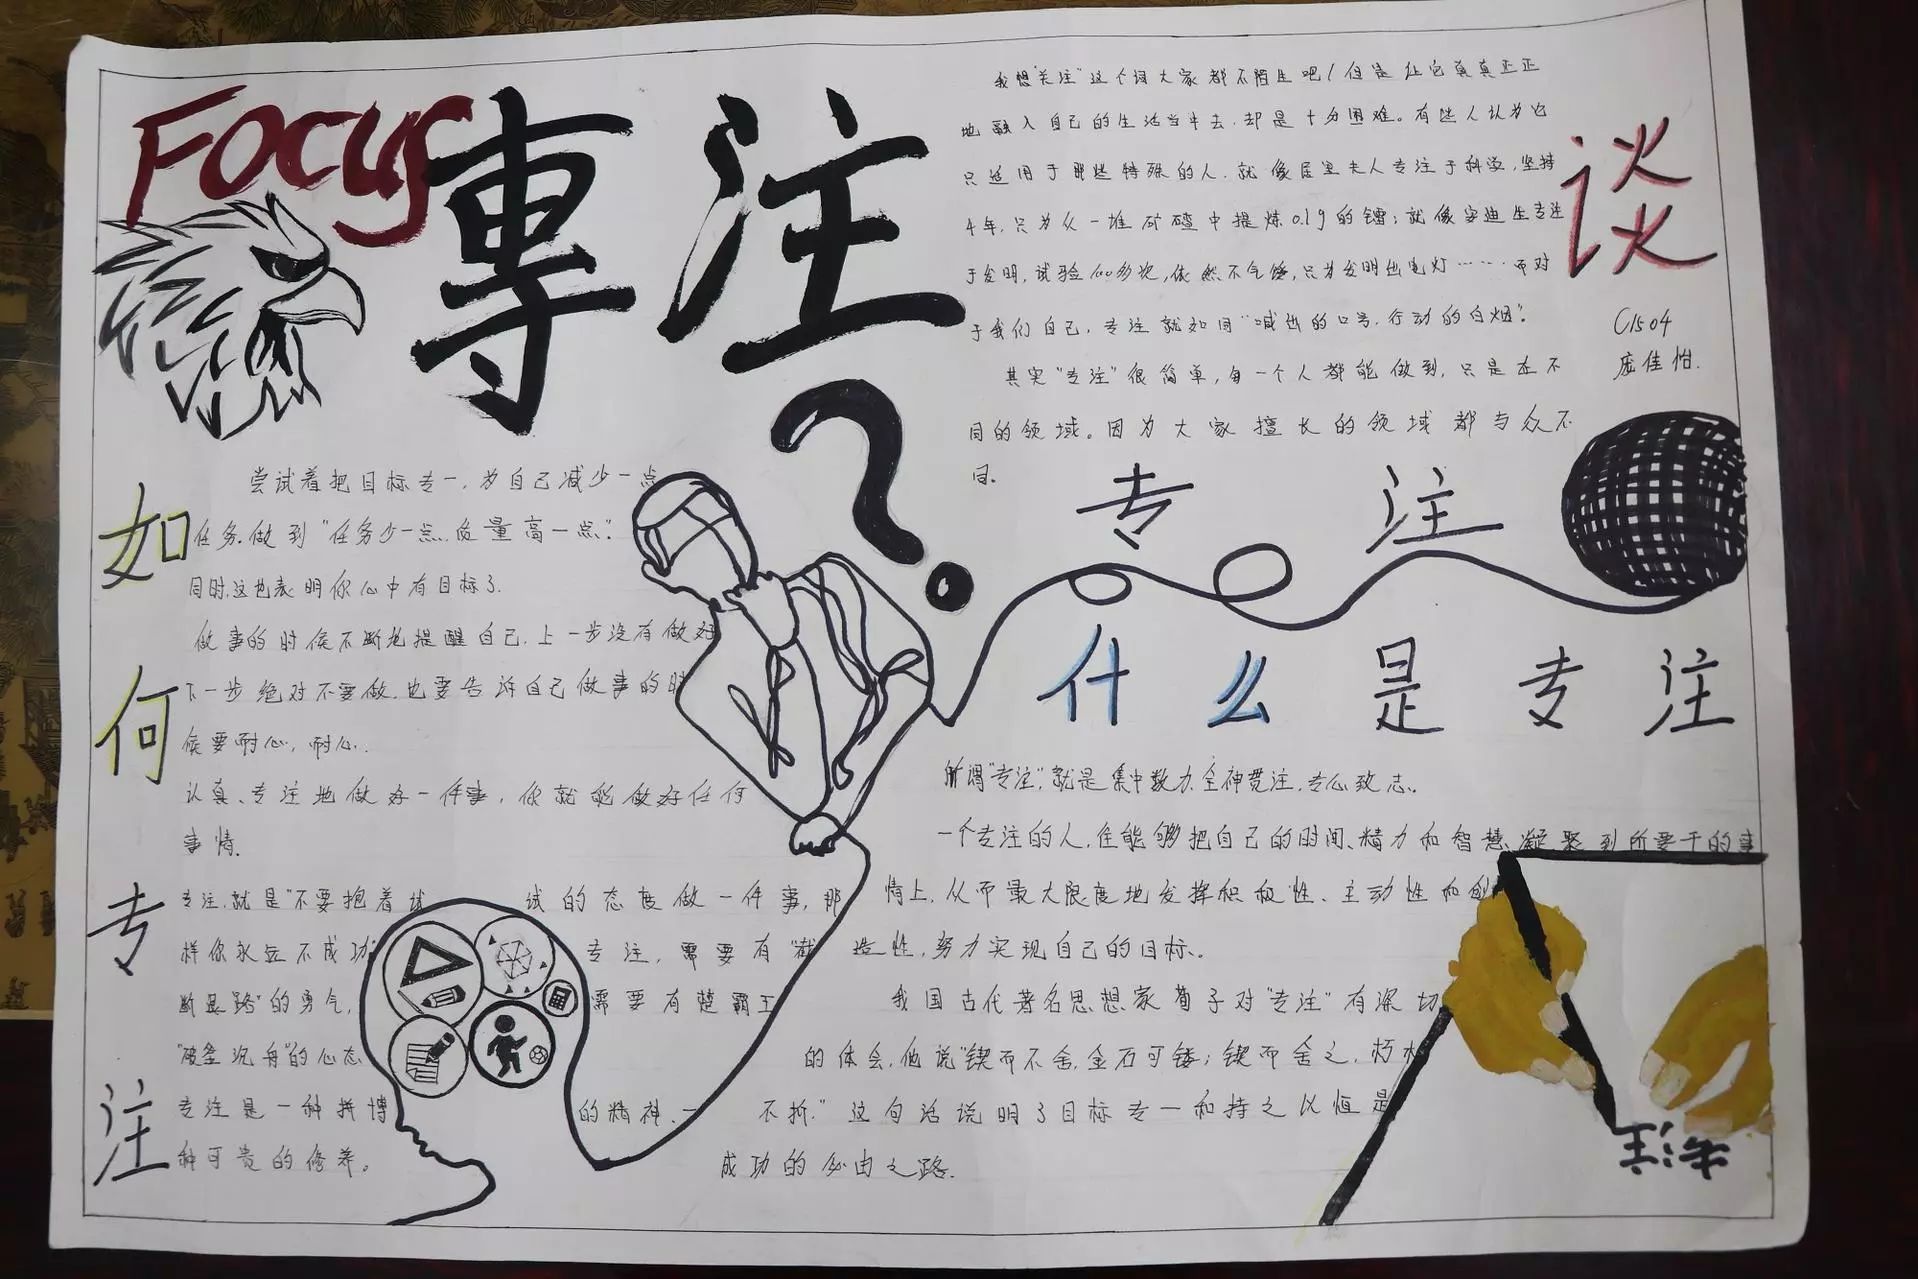 Focus
專注?
谈专注
我想"关注"这个词大家都不陌生吧!但是让它真真正正
地融入自己的生活当中去,却是十分困难。有些人认为它
只适用于那些特殊的人,就像居里夫人专注于科学,坚持
4年,只为从一堆矿碴中提炼0.1g的镭;就像爱迪生专注
于发明,试验
多次,依然不气馁,只为发明出电灯……而对
于我们自己,专注就如同"喊出的口号,行动的白烟"。
其实"专注"很简单,每一个人都能做到,只是在不
同的领域。因为大家擅长的领域都与众不
同。
C1504
庞佳怡.
如何专注
尝试着把目标专一,为自己减少一点
任务.做到"任务少一点,质量高一点."
同时,这也表明你心中有目标了.
做事的时候不断地提醒自己,上一步没有做好
下一步绝对不要做.也要告诉自己做事的时
候要耐心,耐心.
认真、专注地做好一件事,你就能做好任何
事情.
专注,就是"不要抱着试试的态度做一件事,那
样你永远不成功"专注,需要有"截
断思路"的勇气,需要有楚霸王
"破釜沉舟"的心态
专注是一种拼博的精神.一
种可贵的修养。
什么是专注
所谓"专注",就是集中数力、全神贯注,专心致志.
一个专注的人,往能够把自己的时间、精力和智慧凝聚到所要干的事
情上,从而最大限度地发挥积极性、主动性和创
造性,努力实现自己的目标。
我国古代著名思想家荀子对"专注"有深切
的体会,他说"锲而不舍,金石可镂;锲而舍之,朽木
不折."这句话说明了目标专一和持之以恒是
成功的必由之路.